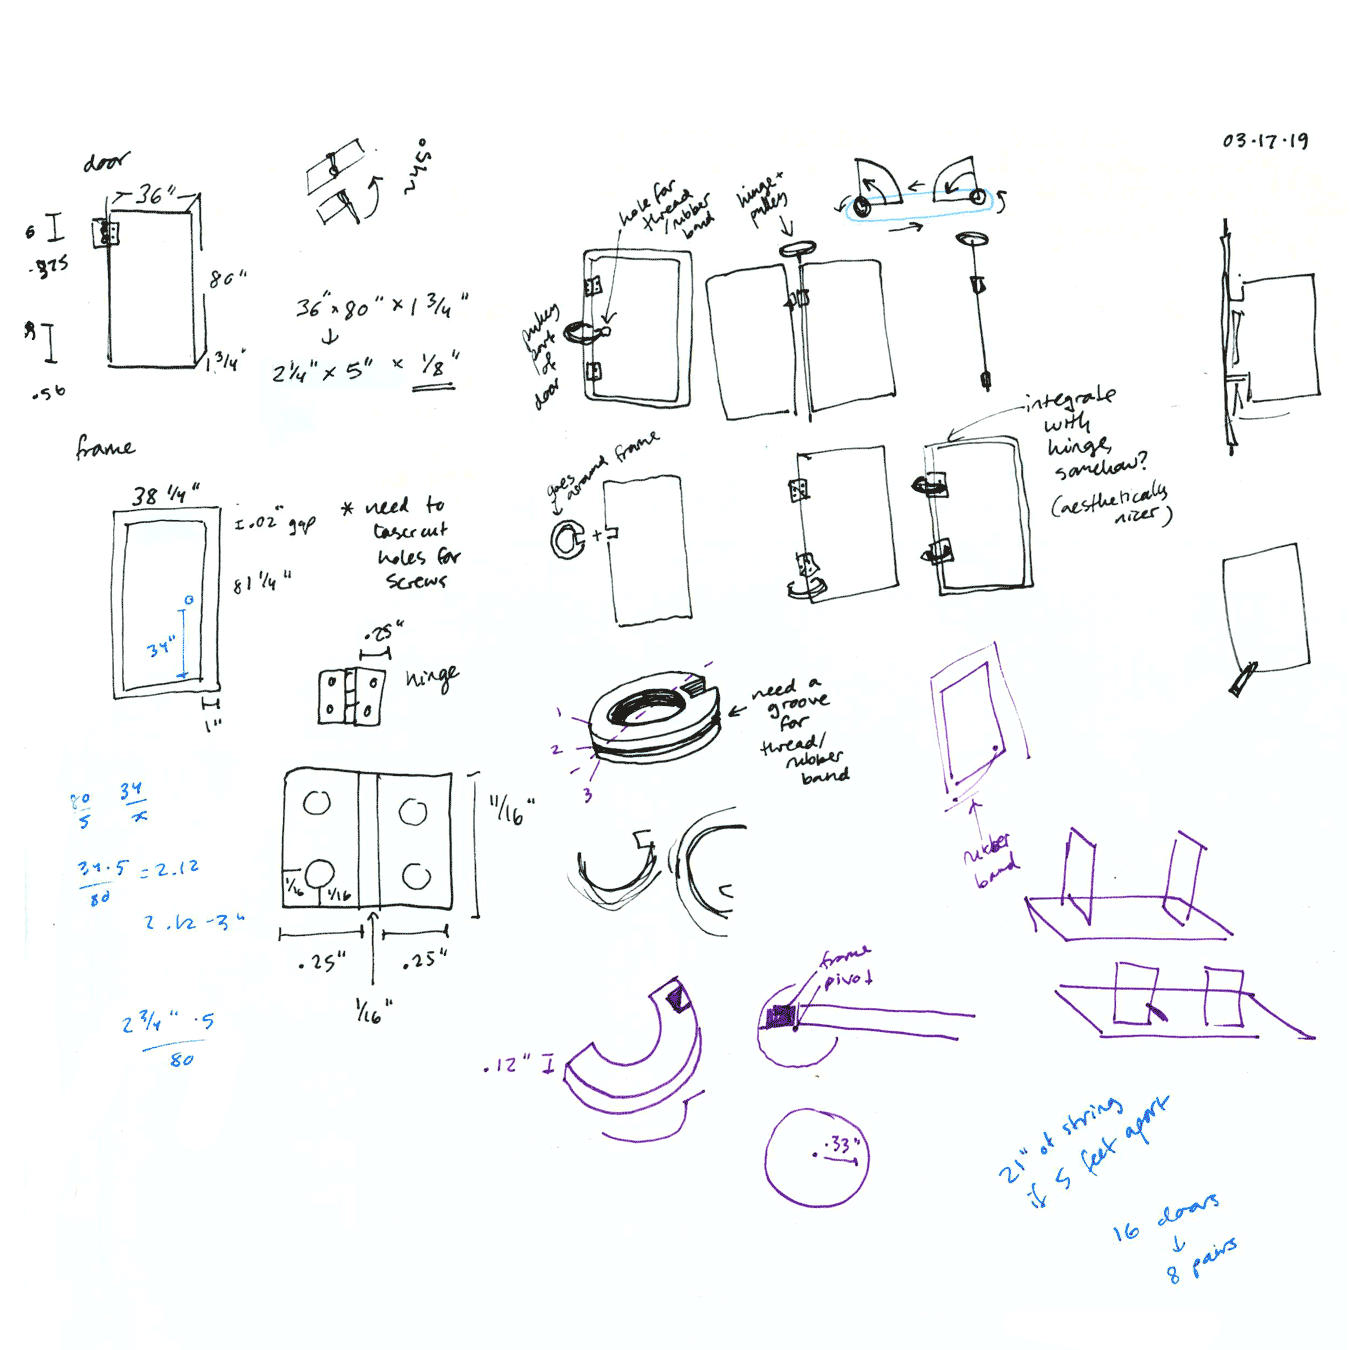 03·17·19
door
36"
6
.375
80"
1 3/4"
.56
~45°
36" × 80" × 1 3/4"
↓
2 1/4" × 5" × 1/8"
frame
38 1/4"
.02" gap
81 1/4"
34"
1"
* need to
lasercut
holes for
screws
.25"
hinge
11/16"
1/16
1/16
.25"
.25"
1/16"
80/5
34/x
34·5/80 = 2.12
2.12 - 3"
2 3/4" · 5
80
hole for
thread
/rubber
band
pulley
part
of
door
hinge +
pulley
goes
around frame
+
integrate
with
hinge,
somehow?
(aesthetically
nicer)
1
2
3
need a
groove
for
thread/
rubber
band
rubber
band
.12"
frame
pivot
.33"
21" of string
if 5 feet apart
16 doors
↓
8 pairs